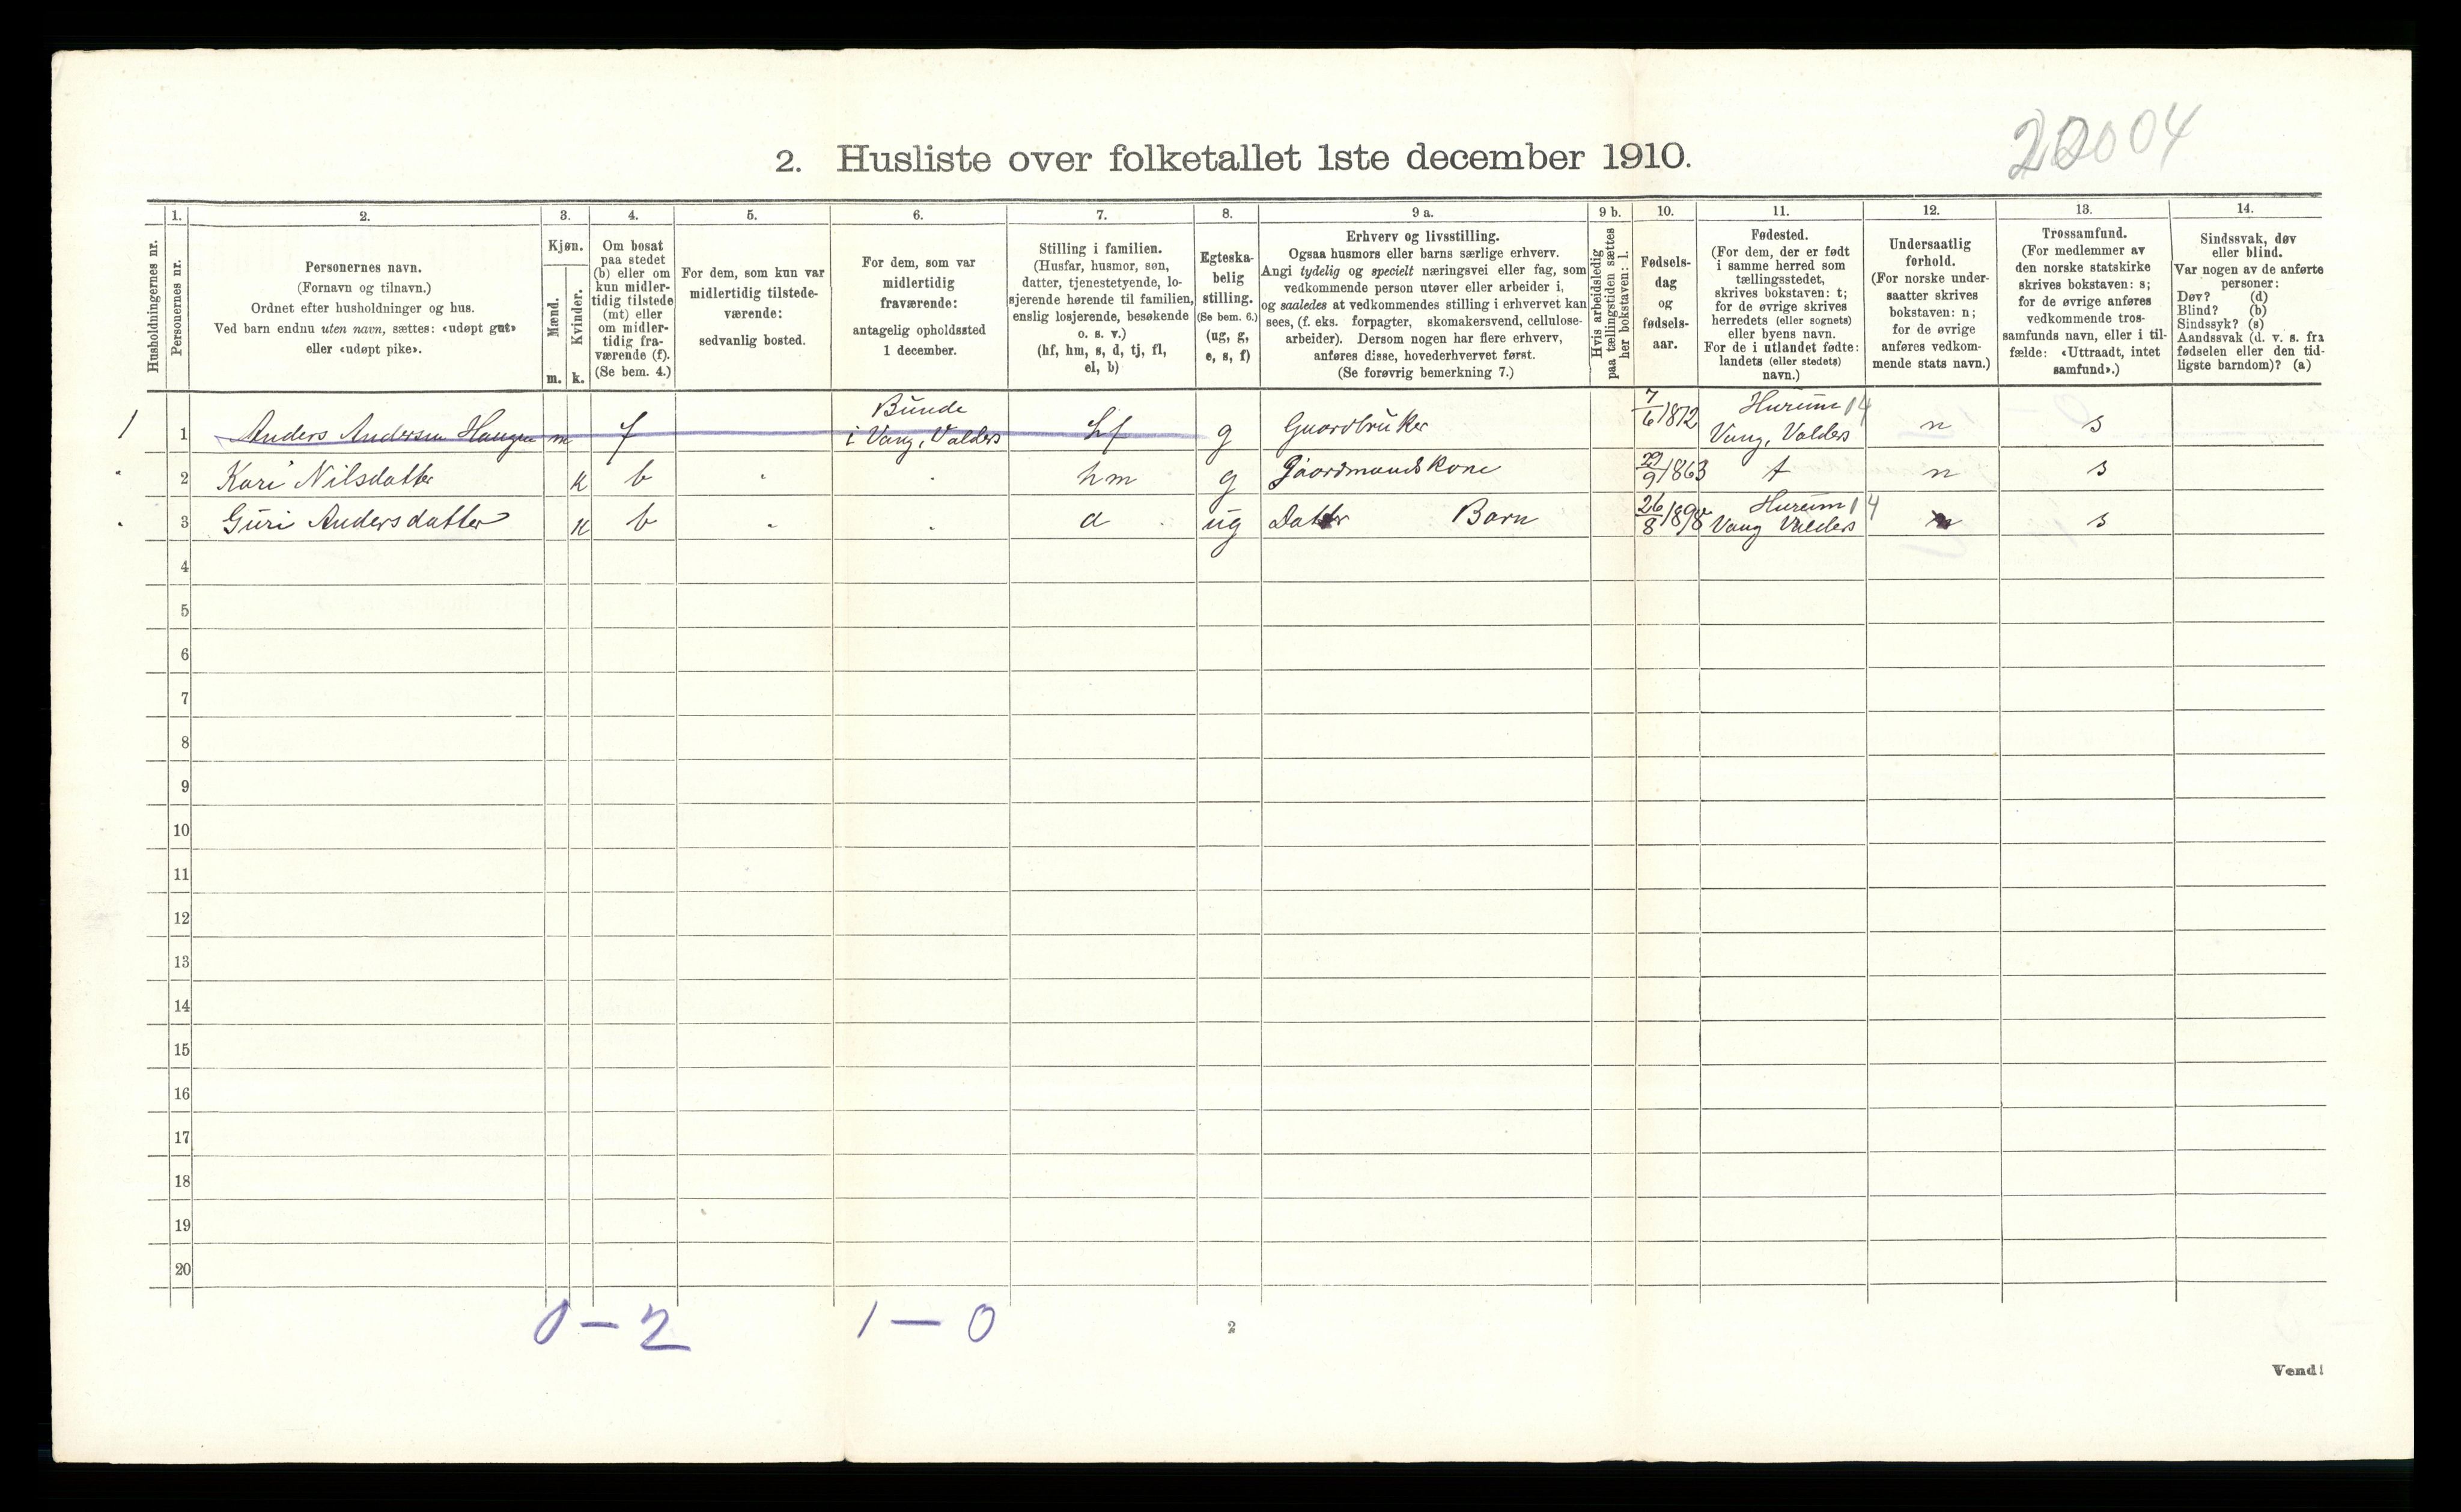 22004
2. Husliste over folketallet 1ste december 1910.
Husholdningernes nr.
1.
Personernes nr.
2.
Personernes navn.
(Fornavn og tilnavn.)
Ordnet efter husholdninger og hus.
Ved barn endnu uten navn, sættes: «udøpt gut»
eller «udøpt pike».
3.
Kjøn.
Mænd.
m.
Kvinder.
k.
4.
Om bosat
paa stedet
(b) eller om
kun midler-
tidig tilstede
(mt) eller
om midler-
tidig fra-
værende (f).
(Se bem. 4.)
5.
For dem, som kun var
midlertidig tilstede-
værende:
sedvanlig bosted.
6.
For dem, som var
midlertidig
fraværende:
antagelig opholdssted
1 december.
7.
Stilling i familien.
(Husfar, husmor, søn,
datter, tjenestetyende, lo-
sjerende hørende til familien,
enslig losjerende, besøkende
o. s. v.)
(hf, hm, s, d, tj, fl,
el, b)
8.
Egteska-
belig
stilling.
(Se bem. 6.)
(ug, g,
e, s, f)
9 a.
Erhverv og livsstilling.
Ogsaa husmors eller barns særlige erhverv.
Angi tydelig og specielt næringsvei eller fag, som
vedkommende person utøver eller arbeider i,
og saaledes at vedkommendes stilling i erhvervet kan
sees, (f. eks. forpagter, skomakersvend, cellulose-
arbeider). Dersom nogen har flere erhverv,
anføres disse, hovederhvervet først.
(Se forøvrig bemerkning 7.)
9 b.
Hvis arbeidsledig
paa tællingstiden sættes
her bokstaven: l.
10.
Fødsels-
dag
og
fødsels-
aar.
11.
Fødested.
(For dem, der er født
i samme herred som
tællingsstedet,
skrives bokstaven: t;
for de øvrige skrives
herredets (eller sognets)
eller byens navn.
For de i utlandet fødte:
landets (eller stedets)
navn.)
12.
Undersaatlig
forhold.
(For norske under-
saatter skrives
bokstaven: n;
for de øvrige
anføres vedkom-
mende stats navn.)
13.
Trossamfund.
(For medlemmer av
den norske statskirke
skrives bokstaven: s;
for de øvrige anføres
vedkommende tros-
samfunds navn, eller i til-
fælde: «Uttraadt, intet
samfund».)
14.
Sindssvak, døv
eller blind.
Var nogen av de anførte
personer:
Døv? (d)
Blind? (b)
Sindssyk? (s)
Aandssvak (d. v. s. fra
fødselen eller den tid-
ligste barndom)? (a)
1 1 Anders Andersen Haugen m f Bunde i Vang, Valders hf g Gaardbruker 7/6 1872 Hurum 14 Vang, Valders n s
" 2 Kari Nilsdatter k b " " hm g Gaardmandskone 29/9 1863 t n s
" 3 Guri Andersdatter k b " " d ug Datter Barn 26/8 1898 Hurum 14 Vang Valders n s
4
5
6
7
8
9
10
11
12
13
14
15
16
17
18
19
20
0 – 2 1 – 0
2
Vend!